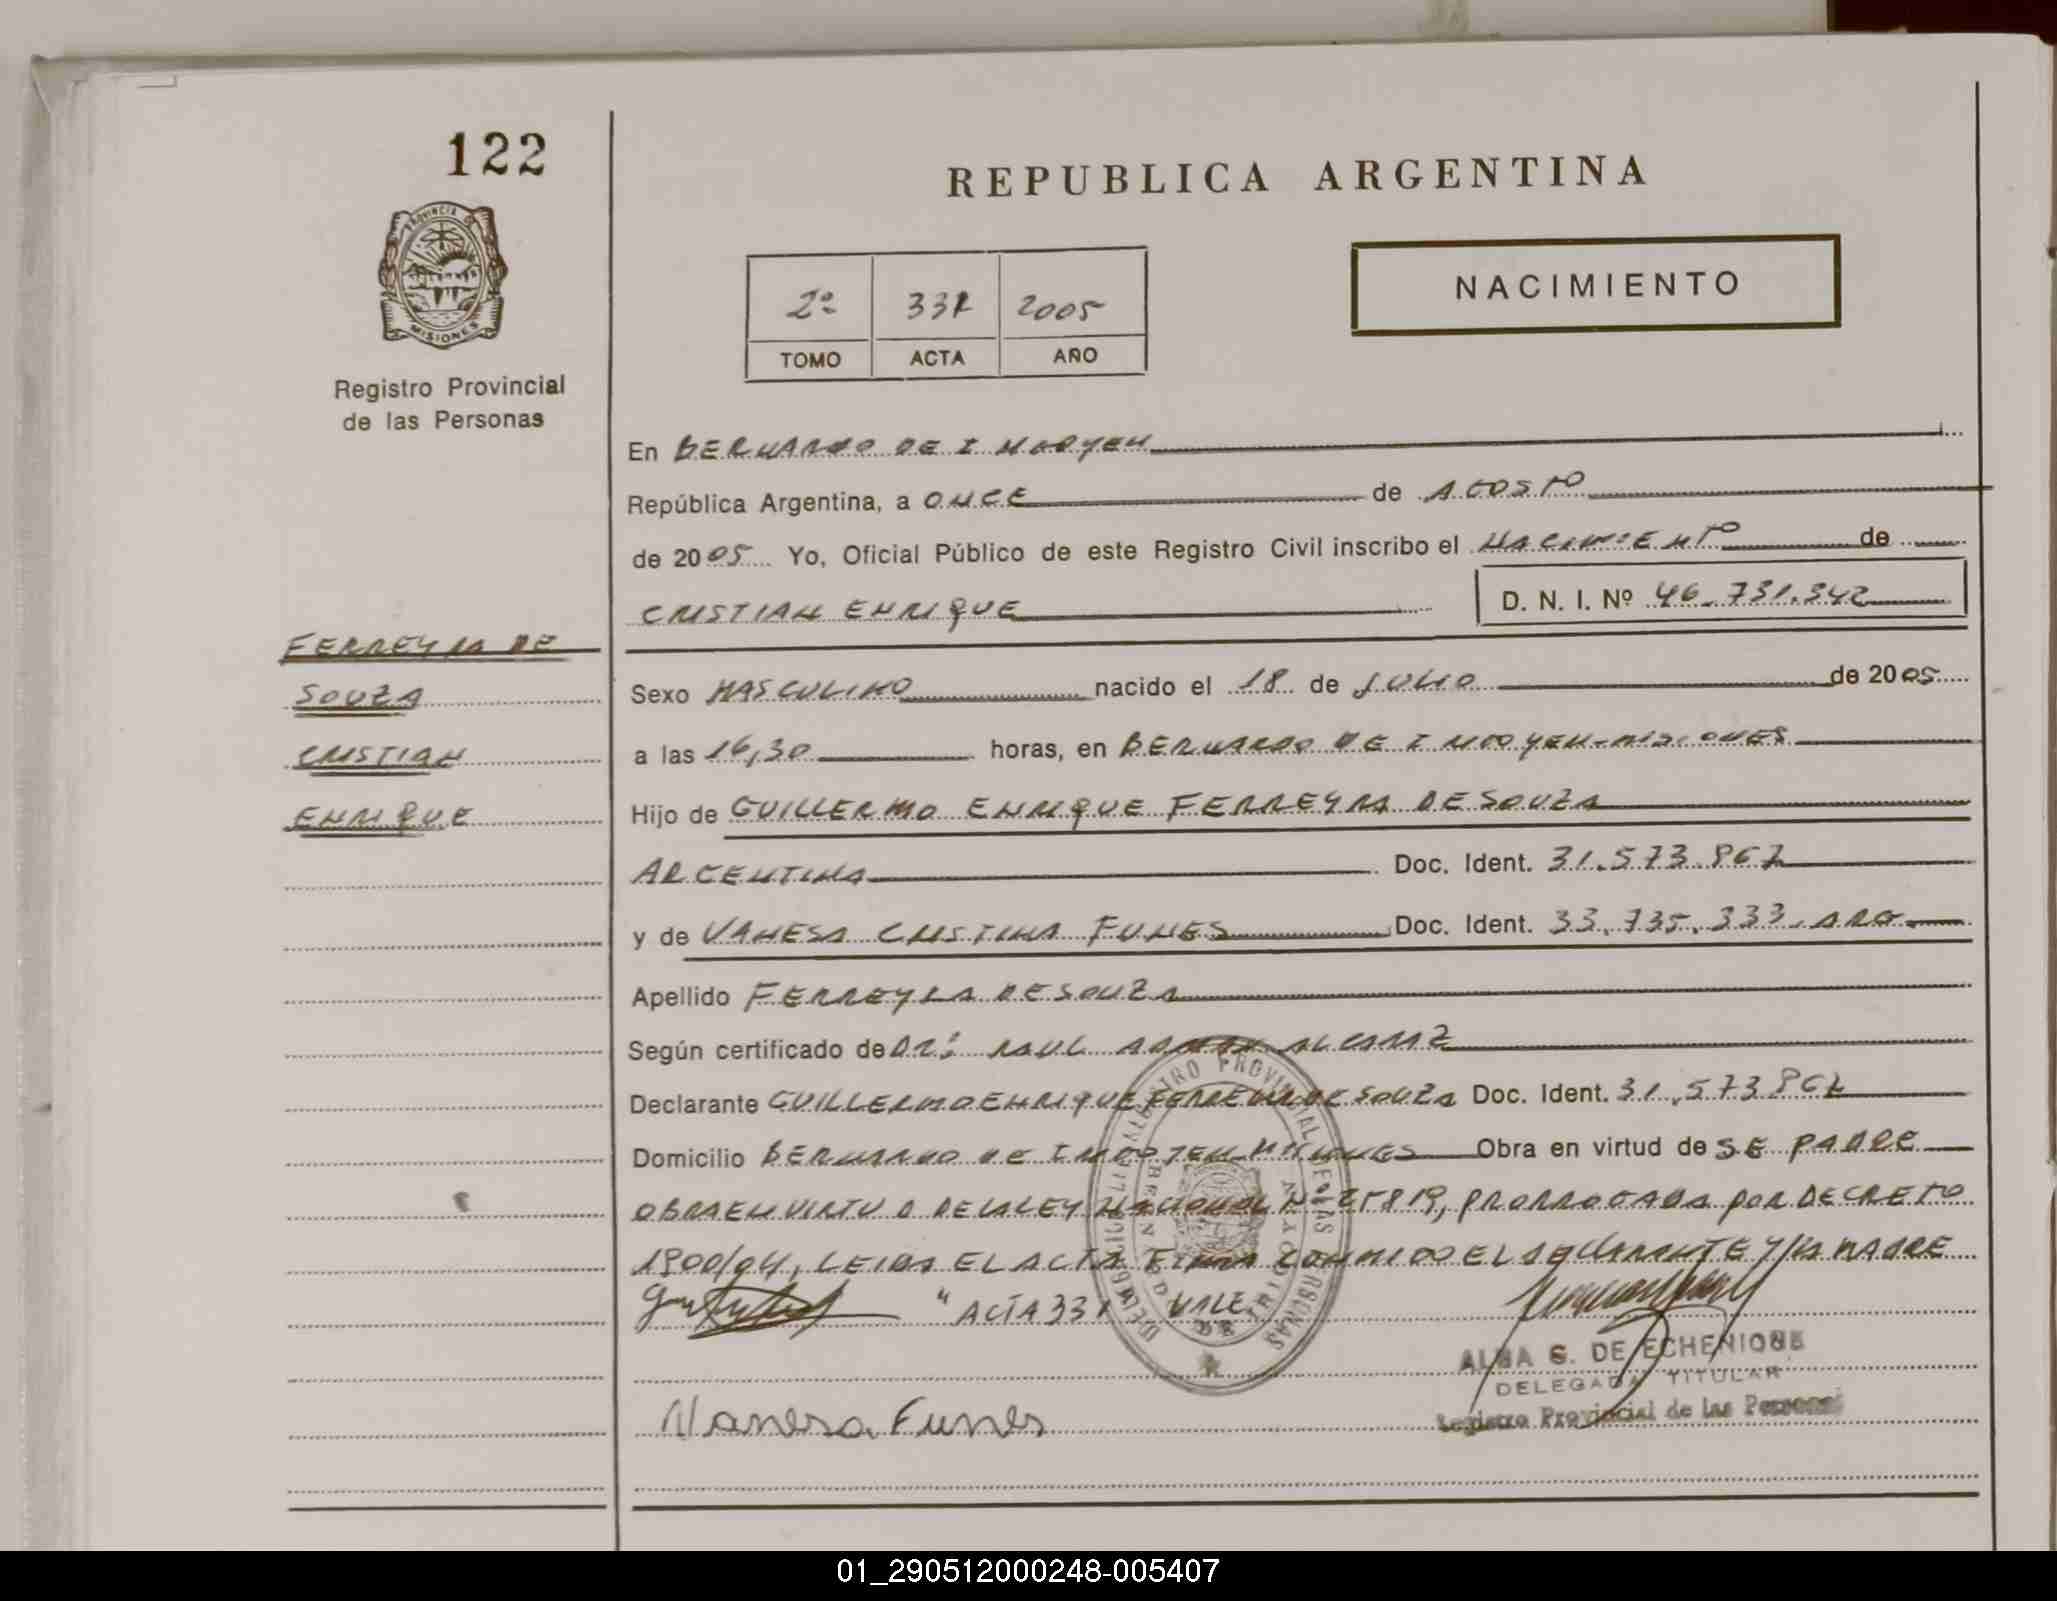 122
PROVINCIA DE
MISIONES
Registro Provincial
de las Personas
REPUBLICA ARGENTINA
NACIMIENTO
2º 331 2005
TOMO ACTA AÑO
En BERNARDO DE IRIGOYEN
República Argentina, a ONCE de AGOSTO
de 2005 Yo, Oficial Público de este Registro Civil inscribo el NACIMIENTO de
CRISTIAN ENRIQUE D. N. I. Nº 46.731.342
FERREYRA DE
SOUZA
CRISTIAN
ENRIQUE
Sexo MASCULINO nacido el 18 de JULIO de 2005
a las 16,30 horas, en BERNARDO DE IRIGOYEN-MISIONES
Hijo de GUILLERMO ENRIQUE FERREYRA DE SOUZA
ARGENTINA Doc. Ident. 31.573.867
y de VANESA CRISTINA FUNES Doc. Ident. 33.735.333. ARG
Apellido FERREYRA DE SOUZA
Según certificado de DR: RAUL ALCARAZ
Declarante GUILLERMO ENRIQUE FERREYRA DE SOUZA Doc. Ident. 31.573.867
Domicilio BERNARDO DE IRIGOYEN MISIONES Obra en virtud de SE PADRE
OBRA EN VIRTUD DE LA LEY NACIONAL Nº 25819, PRORROGADA POR DECRETO
1900/04, LEIDA EL ACTA FIRMA CONMIGO EL DECLARANTE Y LA MADRE
"ACTA 331 VALE
ALBA G. DE ECHENIQUE
DELEGADA TITULAR
Registro Provincial de las Personas
Vanesa Funes
01_290512000248-005407